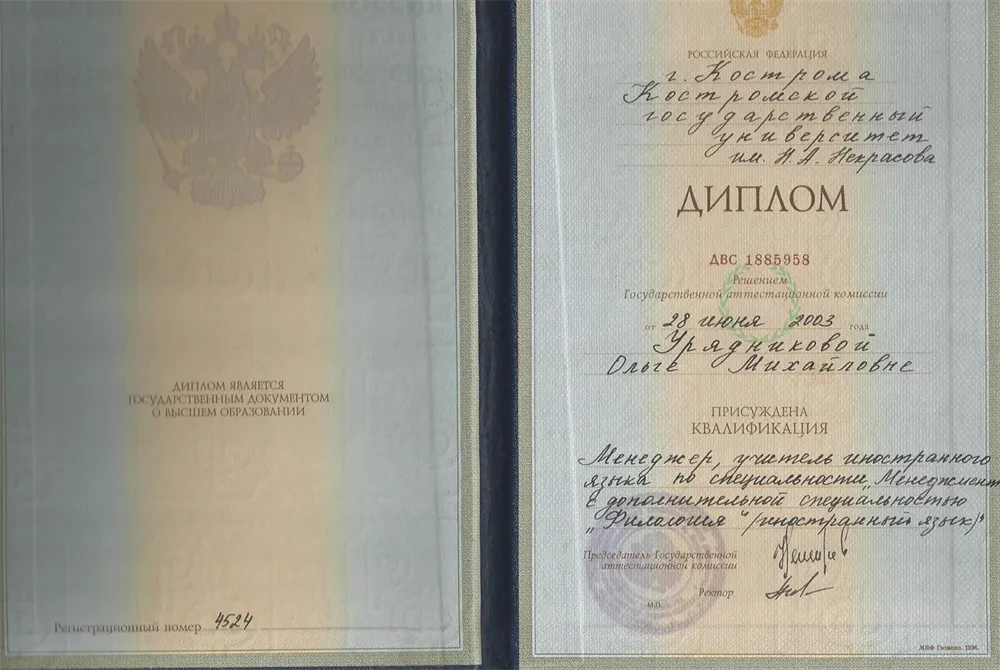 ДИПЛОМ ЯВЛЯЕТСЯ
ГОСУДАРСТВЕННЫМ ДОКУМЕНТОМ
О ВЫСШЕМ ОБРАЗОВАНИИ
Регистрационный номер 4524
РОССИЙСКАЯ ФЕДЕРАЦИЯ
г. Кострома
Костромской
государственный
университет
им. Н.А. Некрасова
ДИПЛОМ
ДВС 1885958
Решением
Государственной аттестационной комиссии
от 28 июня 2003 года
Урядниковой
Ольге Михайловне
ПРИСУЖДЕНА
КВАЛИФИКАЦИЯ
Менеджер, учитель иностранного
языка по специальности „Менеджмент
с дополнительной специальностью
„Филология" /иностранный язык/"
Председатель Государственной
аттестационной комиссии
Ректор
М.П.
МПФ Гознака. 1996.